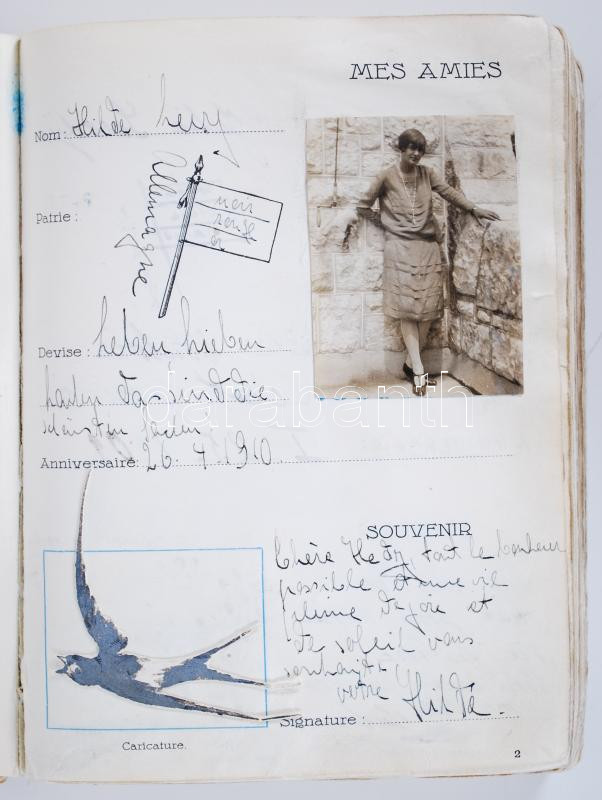 MES AMIES
Nom: Hilde Levy
Patrie: Allemagne
noir
rouge
or
Devise: Leben lieben
lachen das sind die
schönsten
Anniversaire: 26.4.1910.
SOUVENIR
Chère Hedy, tout le bonheur
possible et une vie
pleine de joie et
de soleil vous
souhaite
votre Hilde.
Signature:
Caricature.
2
darabanth